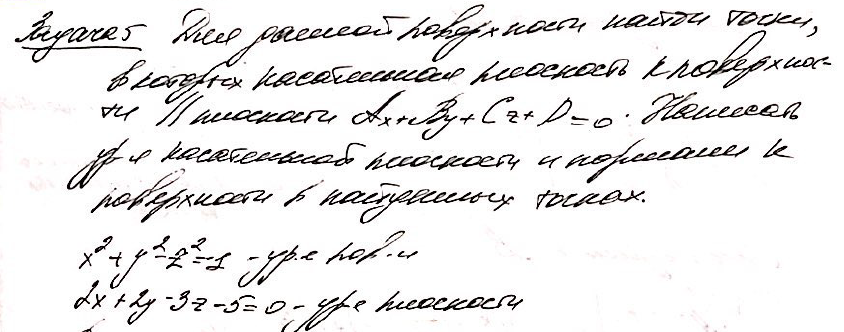 Задача 5 Для данной поверхности найти точки,
в которых касательная плоскость к поверхнос-
ти || плоскости Ax+By+Cz+D=0. Написать
ур-е касательной плоскости и нормали к
поверхности в найденных точках.
x²+y²-z²=-1 - ур-е пов-и
2x+2y-3z-5=0 - ур-е плоскости